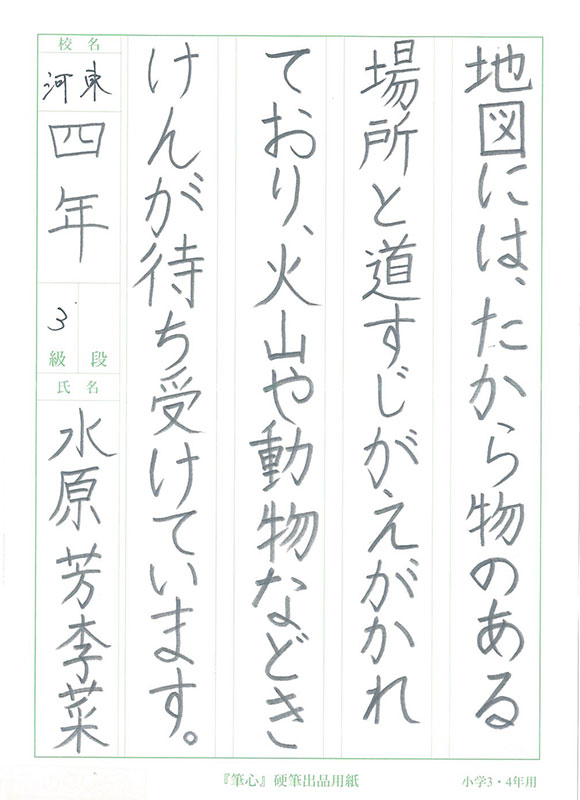 地図には、たから物のある
場所と道すじがえがかれ
ており、火山や動物などき
けんが待ち受けています。
校名
河東
四年
3
級 段
氏名
水原芳李菜
『筆心』硬筆出品用紙
小学3・4年用